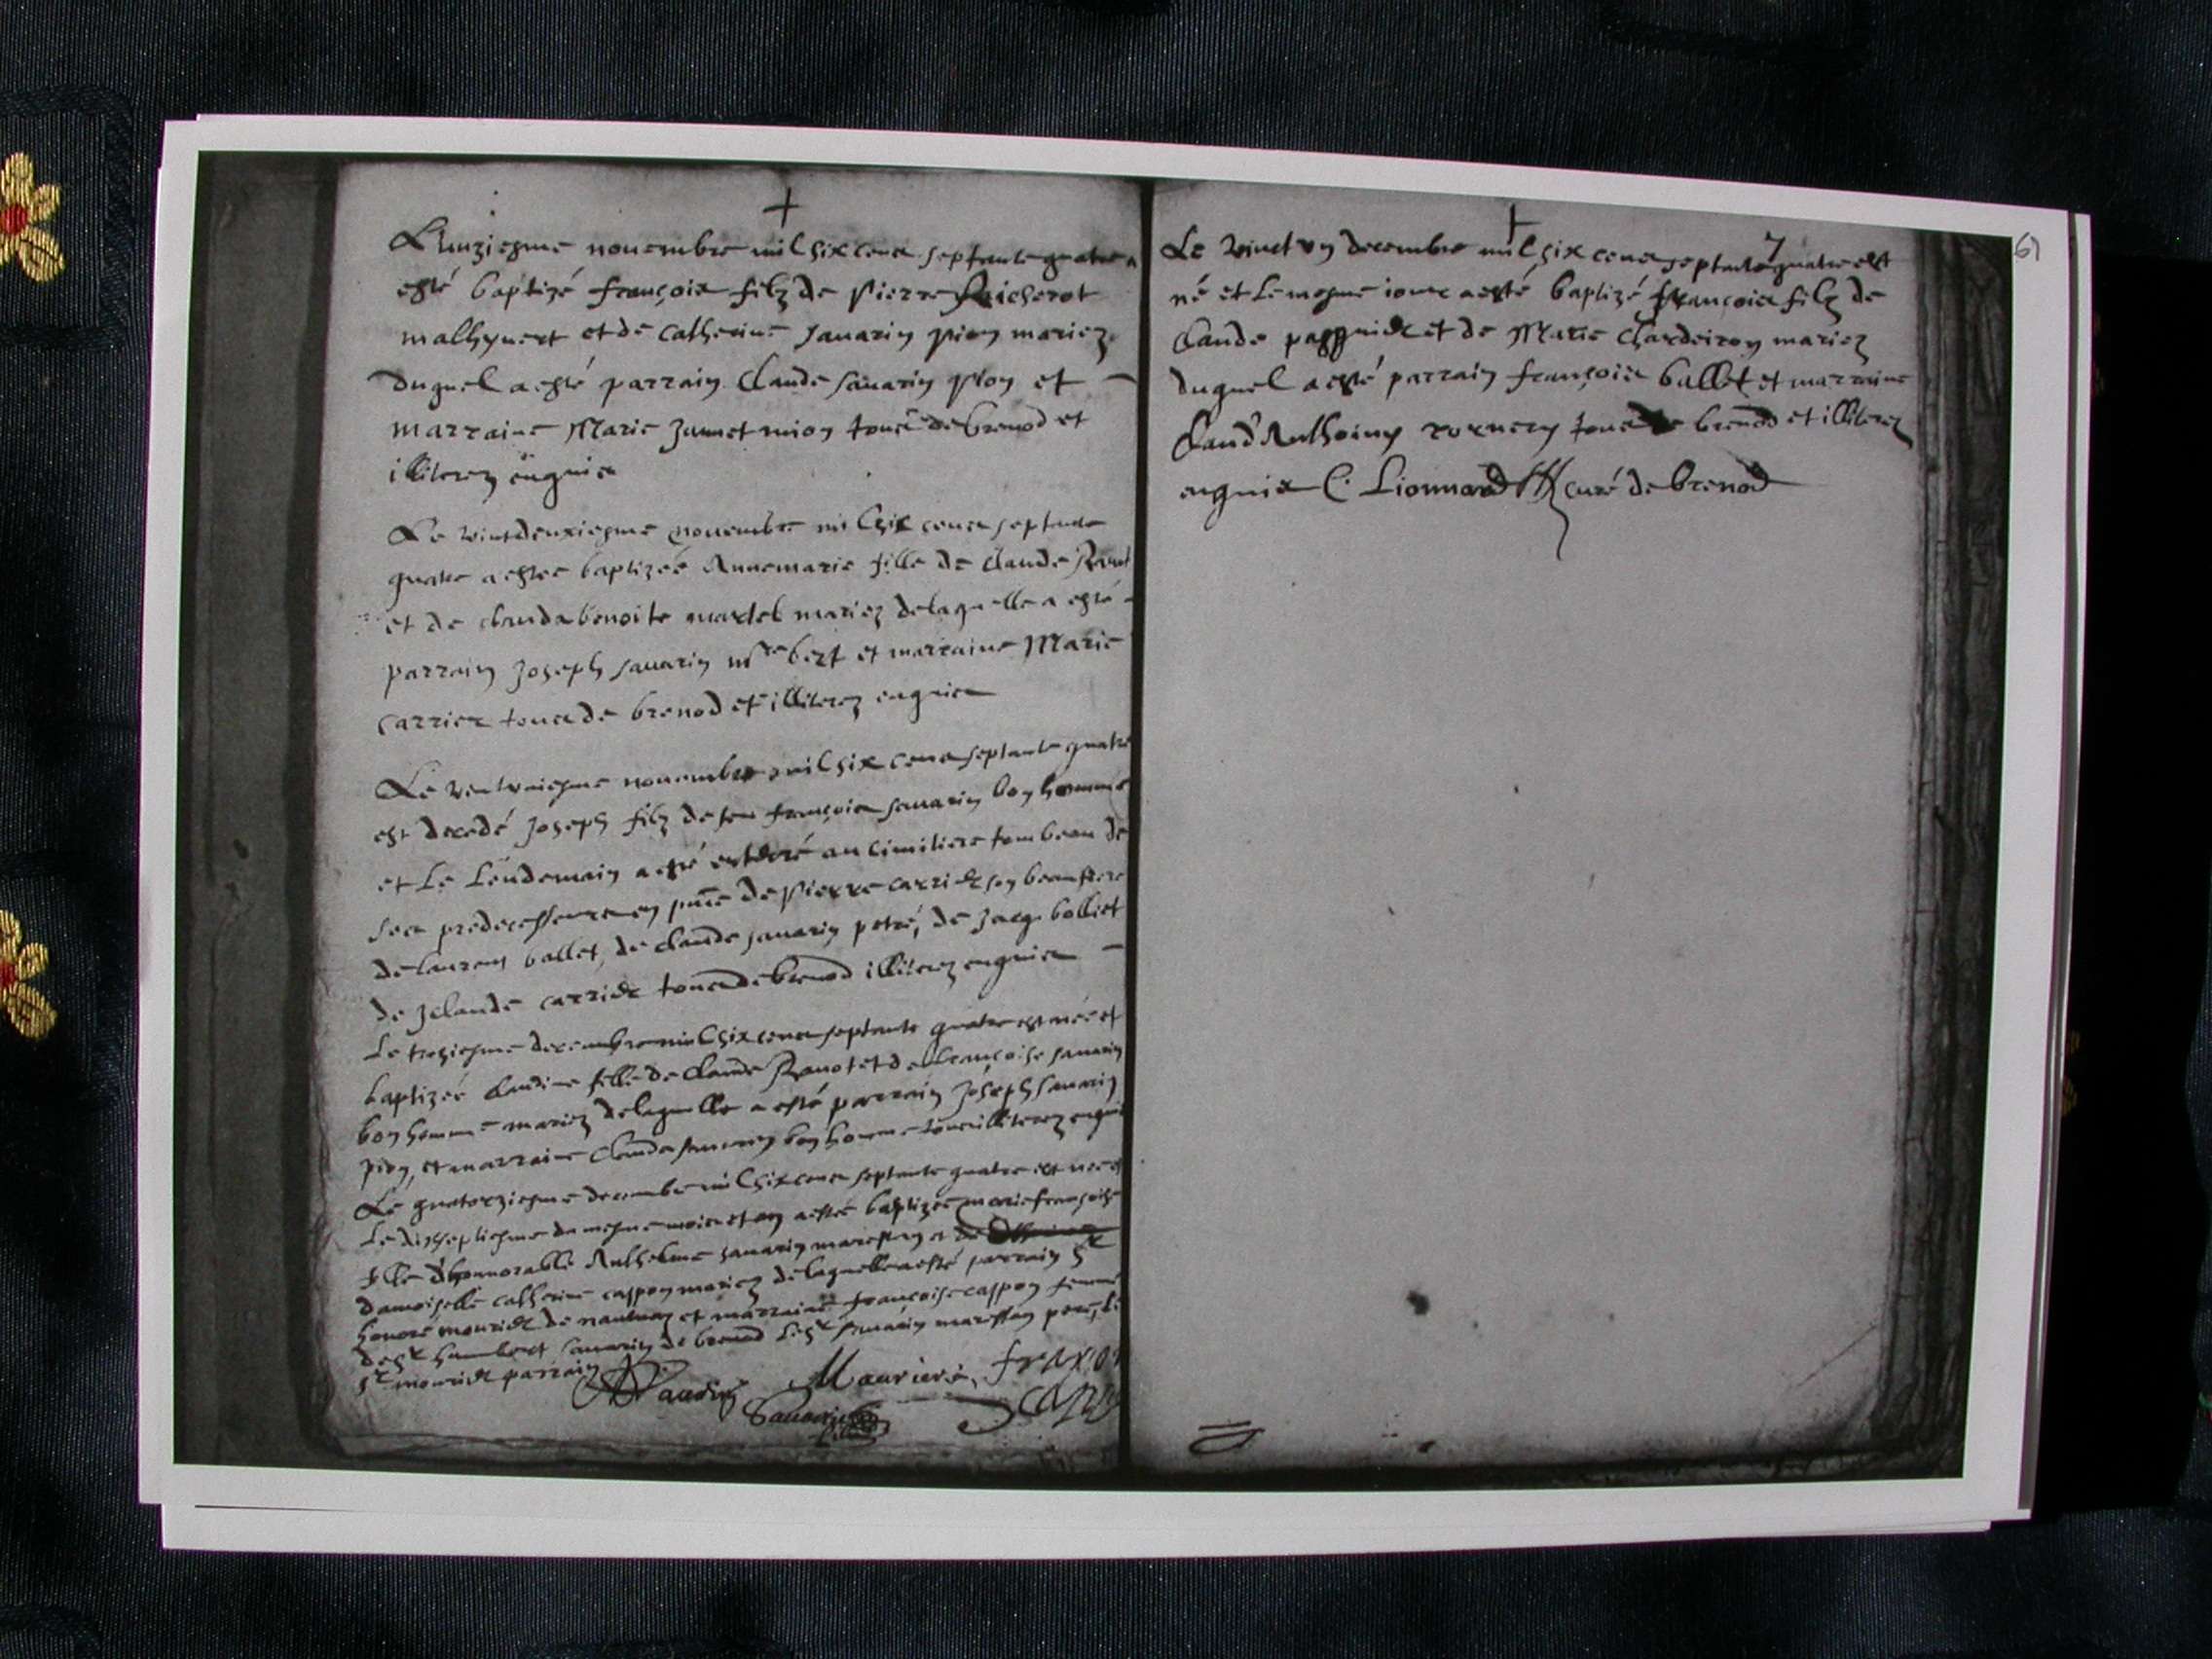 L'unziesme novembre mil six cens septante quatre a
esté baptizé françois filz de Pierre Richerot
malhyvert et de Catherine Savarin pion mariez
duquel a esté parrain Claude Savarin pion et
marraine Marie Jannet mion tous de brenod et
illiterez enquis
Le vintdeuxiesme novembre mil six cens septante
quatre a estee baptizeé Annemarie fille de Claude
et de claudabenoite mariez delaquelle a esté
parrain Joseph Savarin et marraine Marie
carrier tous de brenod et illiterez enquis
Le novembre mil six cens septante quatre
est decedé Joseph filz de feu françois savarin bonhomme
et le lendemain a esté enterré au cimitiere tombeau de
ses predecesseurs en pnce de Pierre carrier son beaufrere
de laurent ballet, de claude savarin petré, de Jacq. bolliet
de carrier tous de brenod illiterez enquis
Le treziesme decembre mil six cens septante quatre est née et
baptizeé Claudine fille de Claude Ravot et de françoise savarin
bonhomme mariez delaquelle a esté parrain Joseph Savarin
pion, et marraine Clauda Savarin bonhomme tous illiterez enquis
Le quatorziesme decembre mil six cens septante quatre est née et
Le dixseptiesme du mesme mois et an a estée baptizeé marie françoise
fille d'honnorable Anthelme Savarin et de
damoiselle catherine cappon mariez delaquelle a esté parrain Sr
honoré mourier de nantua et marraine francoise cappon femme
de Sr humbert savarin de brenod le Sr Savarin pere, le
Sr mourier parrain
Savarin
7
61
Le vinct un decembre mil six cens septante quatre est
né et le mesme iour a esté baptizé françois filz de
Claude et de Marie Chardeiron mariez
duquel a esté parrain françois ballet et marraine
Claud'Anthoiny tous de brenod et illiterez
enquis C. Lionnard curé de brenod